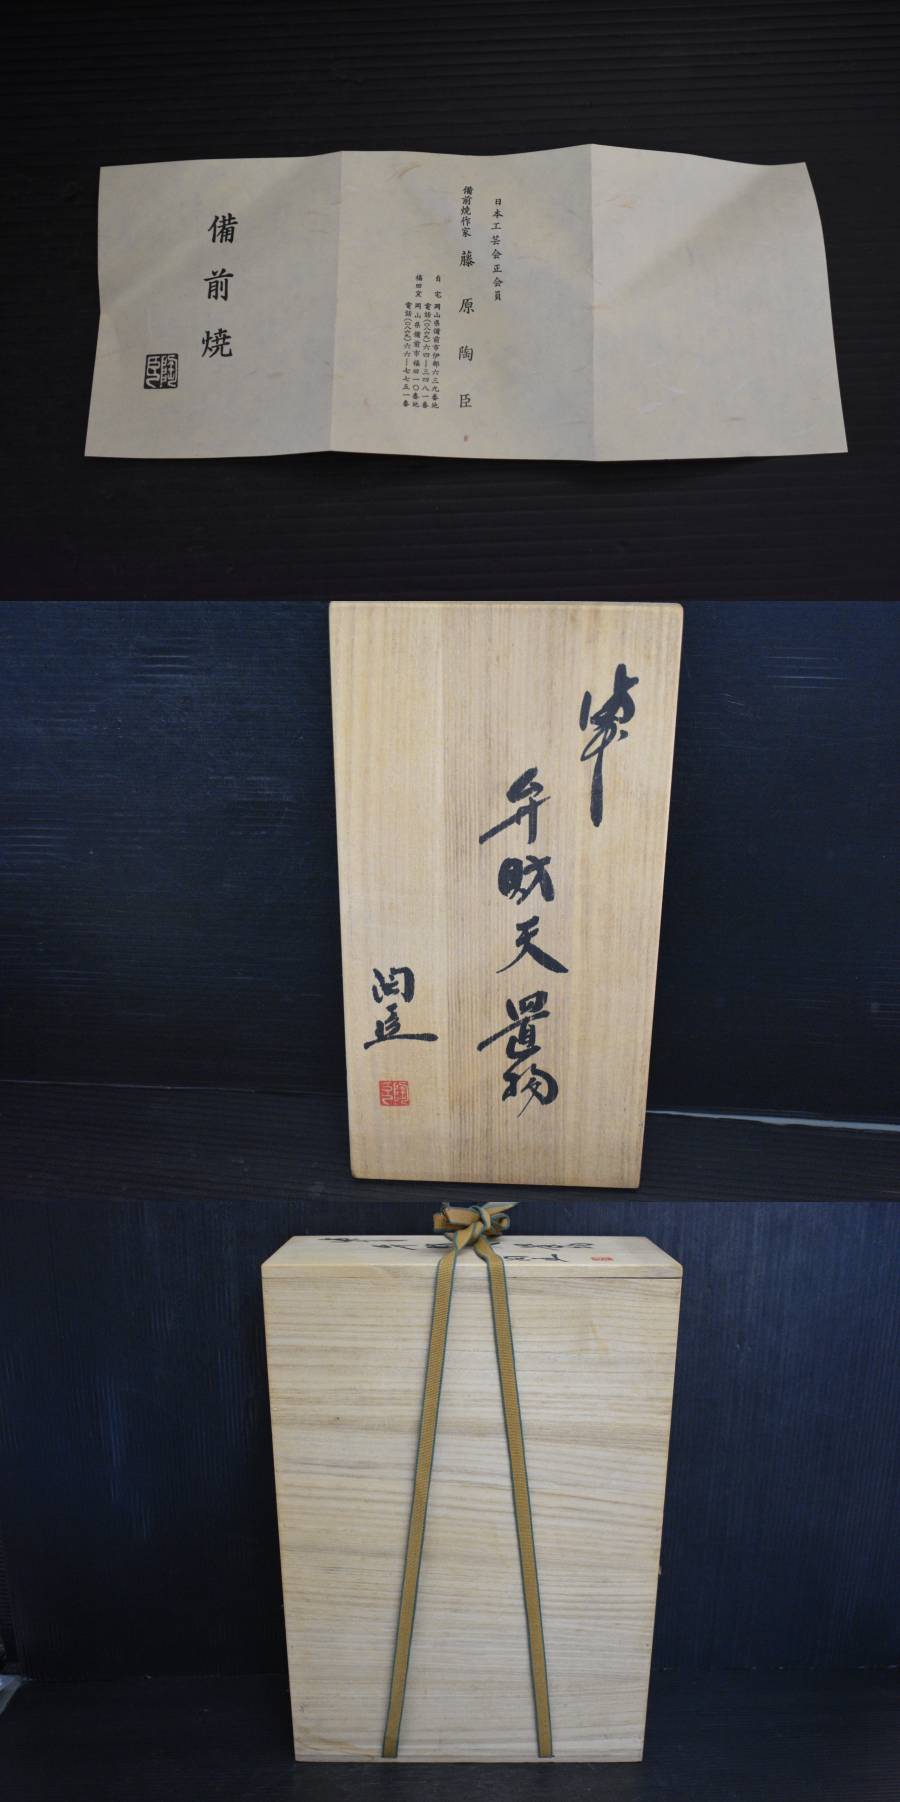 備前焼
陶臣
日本工芸会正会員
備前焼作家 藤原陶臣
自宅 岡山県備前市伊部六三九番地
電話(〇八六九)六四―三四八一番
福田窯 岡山県備前市福田一〇番地
電話(〇八六九)六六―七七五一番
弁財天置物
陶臣
陶臣